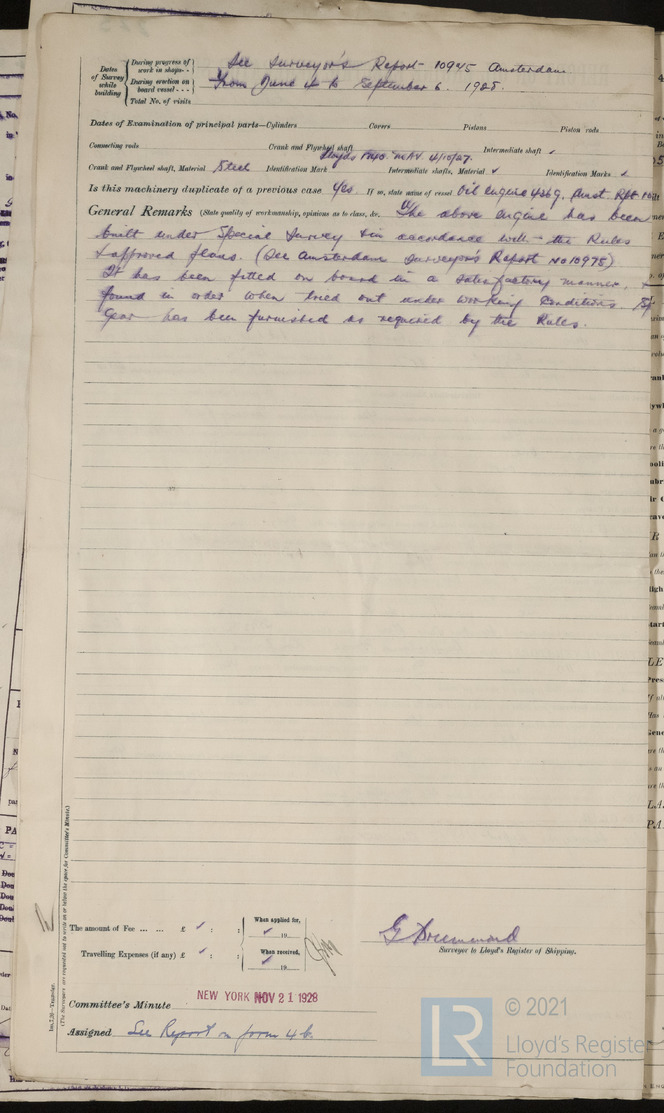 Dates of Survey while building
During progress of work in shops - - See Surveyor's Report 10975 Amsterdam
During erection on board vessel - - - From June 4 to September 6. 1928.
Total No. of visits
Dates of Examination of principal parts—Cylinders Covers Pistons Piston rods
Connecting rods Crank and Flywheel shaft Intermediate shaft ✓
Crank and Flywheel shaft, Material Steel Identification Mark Lloyds 4/10/27. Intermediate shafts, Material ✓ Identification Marks ✓
Is this machinery duplicate of a previous case Yes If so, state name of vessel Oil engine 4369. Amst. Rpt
General Remarks (State quality of workmanship, opinions as to class, &c. The above engine has been
built under Special Survey & in accordance with the Rules
& approved plans. (See Amsterdam Surveyor's Report No 10975)
It has been fitted on board in a satisfactory manner, &
found in order when tried out under working conditions.
Gear has been furnished as required by the Rules.
Im.7,26—Transfer.
(The Surveyors are requested not to write on or below the space for Committee's Minute.)
The amount of Fee ... ... £ ✓ : : When applied for, ✓ 19
Travelling Expenses (if any) £ ✓ : : When received, ✓ 19
G Drummond
Surveyor to Lloyd's Register of Shipping.
Committee's Minute NEW YORK NOV 21 1928
Assigned See Report on form 4b.
© 2021
LR
Lloyd's Register
Foundation